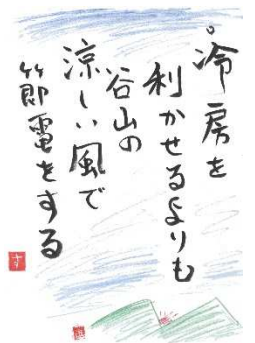 冷房を
利かせるよりも
谷山の
涼しい風で
節電をする
す